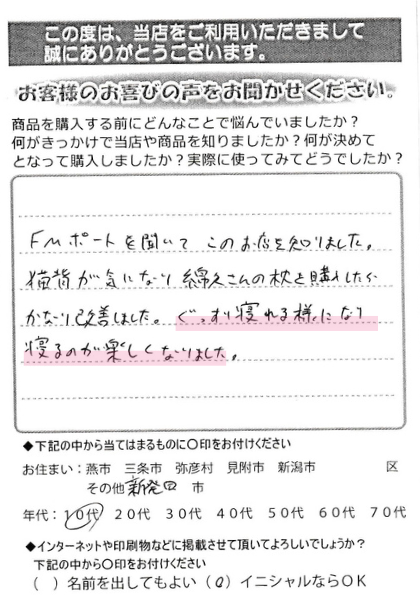 この度は、当店をご利用いただきまして
誠にありがとうございます。
お客様のお喜びの声をお聞かせください。
商品を購入する前にどんなことで悩んでいましたか？
何がきっかけで当店や商品を知りましたか？何が決めて
となって購入しましたか？実際に使ってみてどうでしたか？
FMポートを聞いて このお店を知りました。
猫背が気になり 綿久さんの枕を購入したら
かなり改善しました。ぐっすり寝れる様になり
寝るのが楽しくなりました。
◆下記の中から当てはまるものに〇印をお付けください
お住まい：燕市 三条市 弥彦村 見附市 新潟市 区
その他 新発田 市
年代：10代 20代 30代 40代 50代 60代 70代
◆インターネットや印刷物などに掲載させて頂いてよろしいでしょうか？
下記の中から〇印をお付けください
（ ）名前を出してもよい（〇）イニシャルならＯＫ